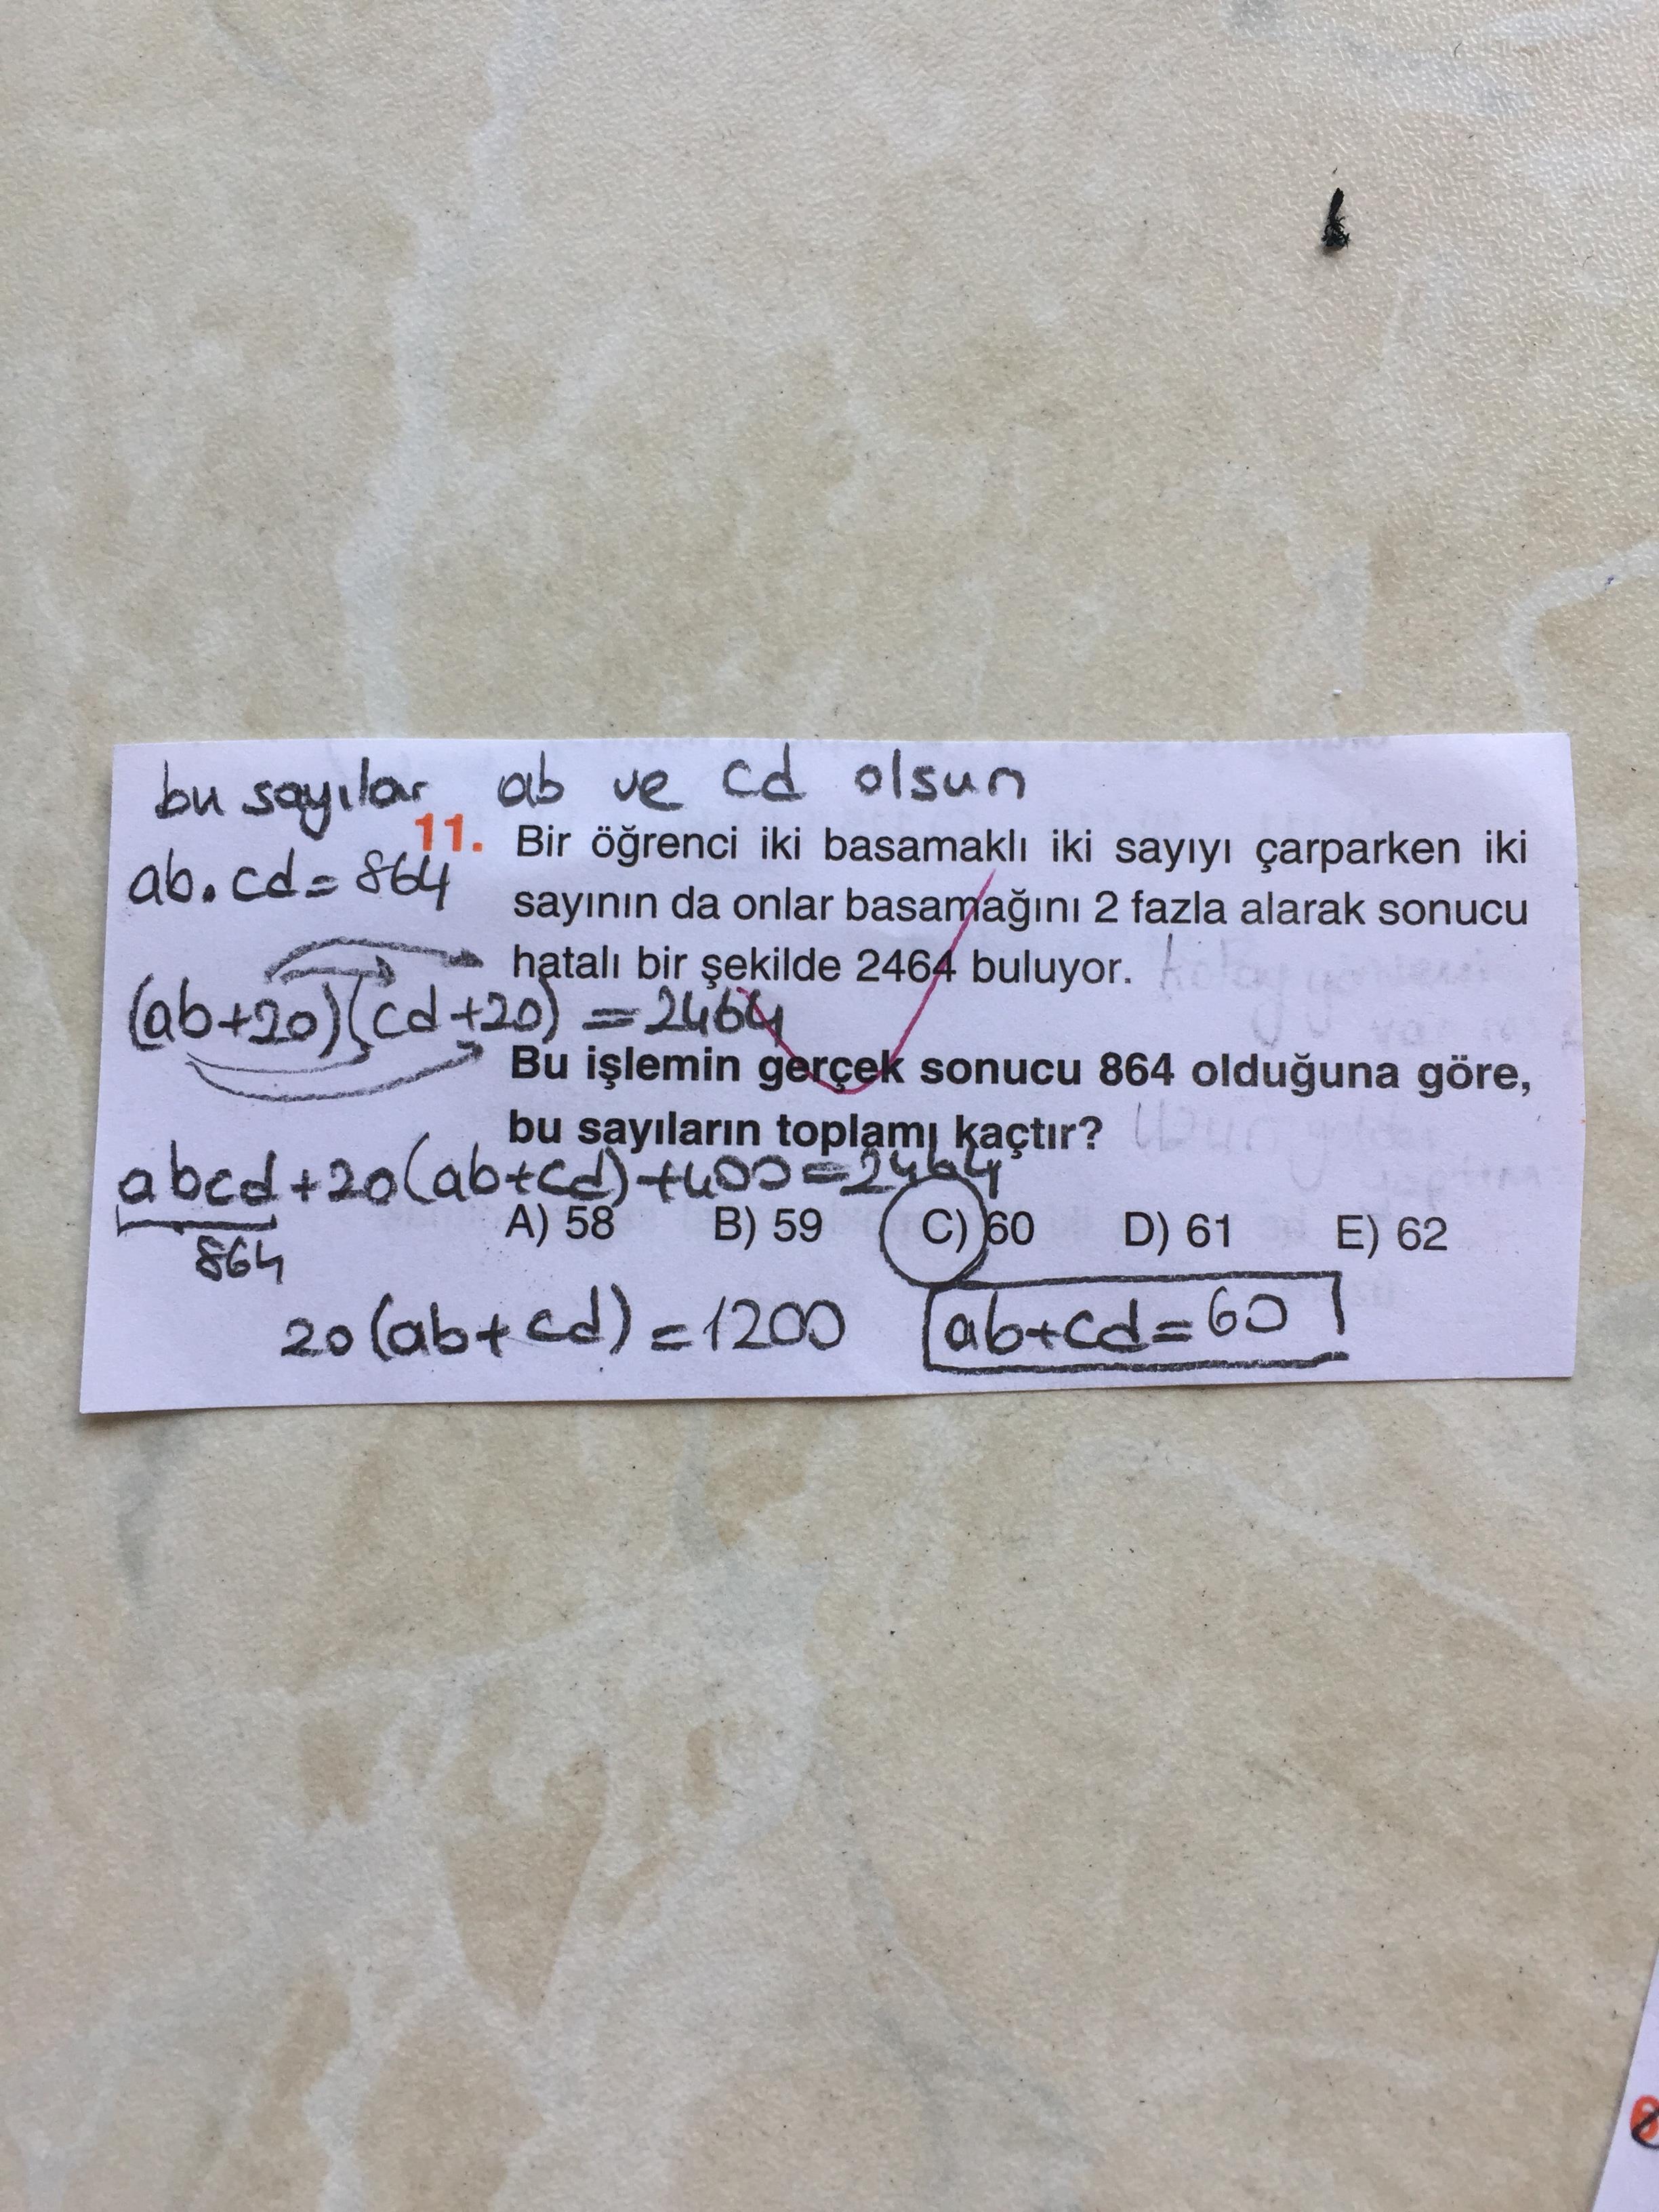 bu sayılar ab ve cd olsun
11. Bir öğrenci iki basamaklı iki sayıyı çarparken iki
ab.cd=864
sayının da onlar basamağını 2 fazla alarak sonucu
hatalı bir şekilde 2464 buluyor.
(ab+20)(cd+20)=2464
Bu işlemin gerçek sonucu 864 olduğuna göre,
bu sayıların toplamı kaçtır?
abcd+20(ab+cd)+400=2464
864
A) 58 B) 59 C) 60 D) 61 E) 62
20(ab+cd)=1200 ab+cd=60